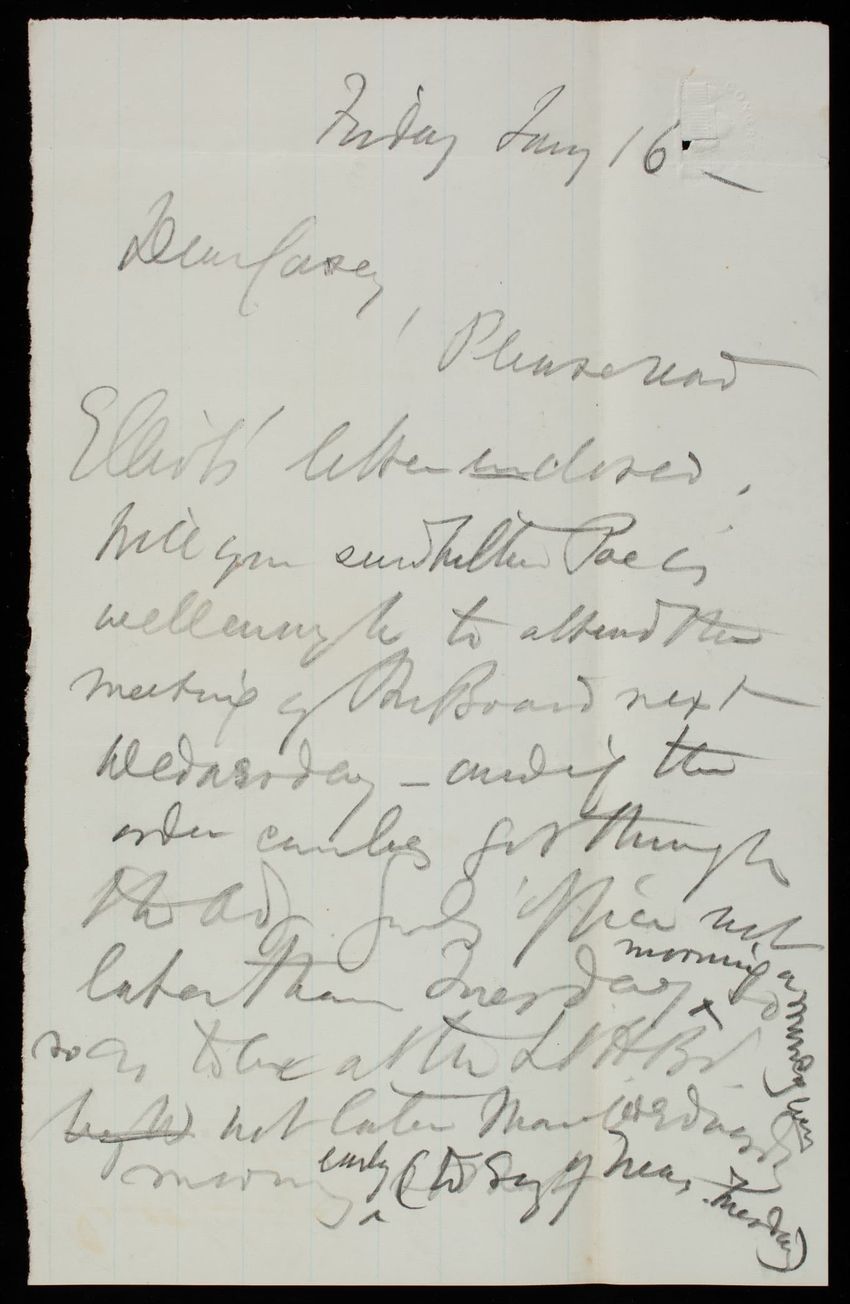 Friday Jany 16 —
Dear Casey,
Please read
Elliots' letter enclosed.
Will you see whether Poe is
well enough to attend the
meeting of the Board next
Wednesday — and if the
order can be got through
the Adj. Genls office not
later than Tuesday morning
so as to be at the L H Bd
not later than Wednesday
morning early (to say
Tuesday)